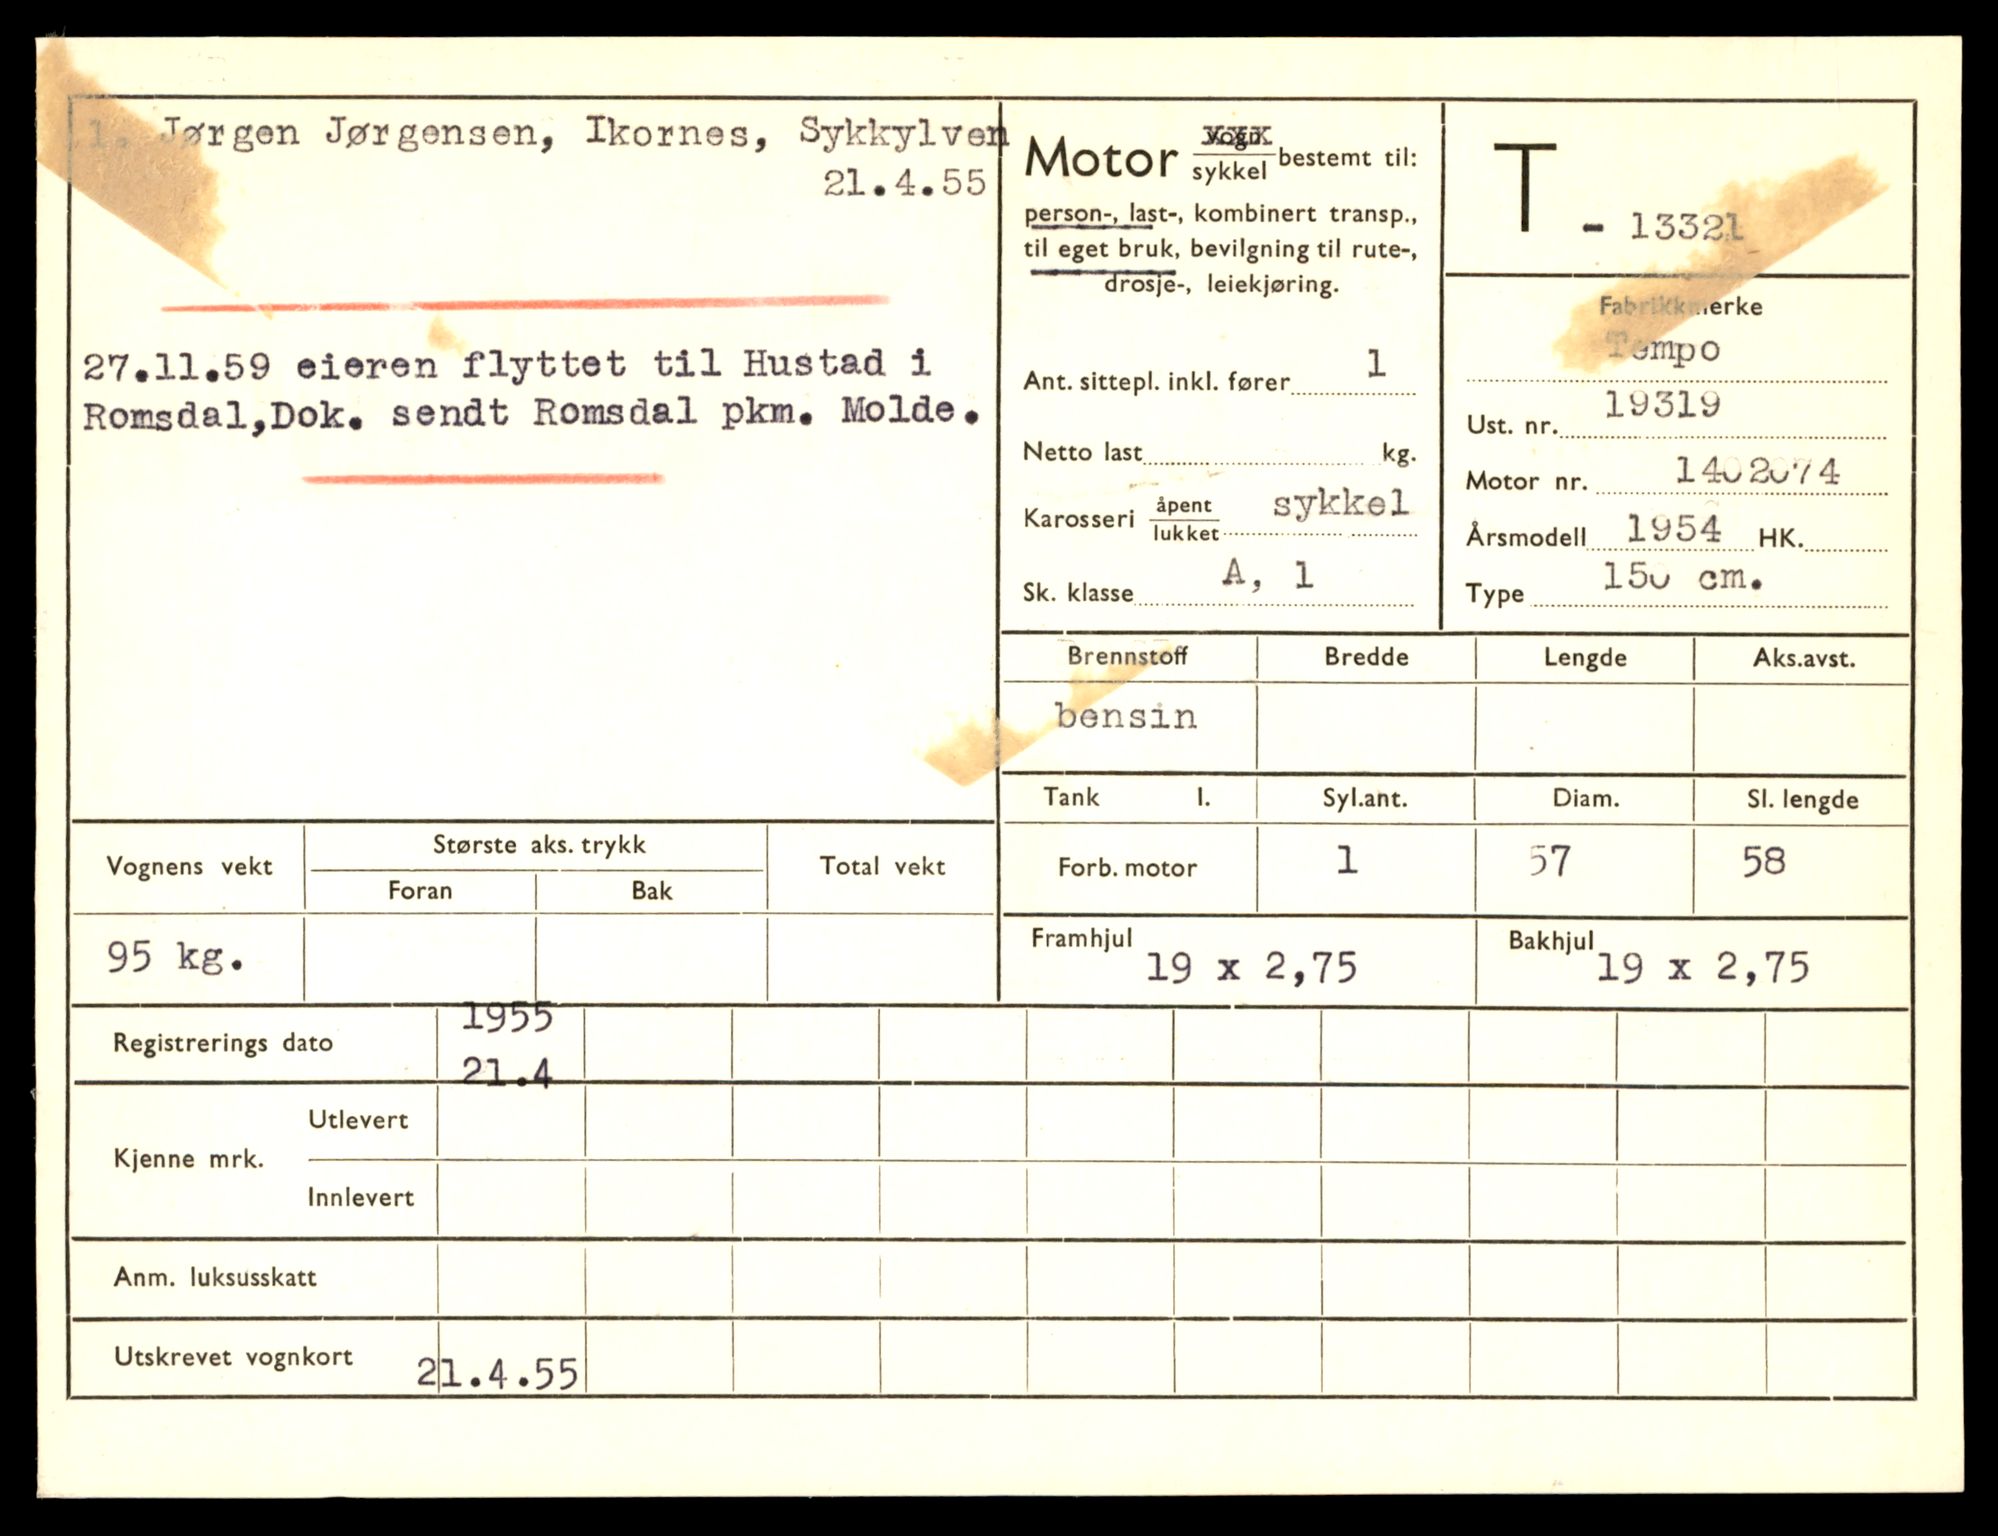 1. Jørgen Jørgensen, Ikornes, Sykkylven
21.4.55
27.11.59 eieren flyttet til Hustad i
Romsdal,Dok. sendt Romsdal pkm. Molde.
Motor vogn/sykkel bestemt til:
person-, last-, kombinert transp.,
til eget bruk, bevilgning til rute-,
drosje-, leiekjøring.
Ant. sittepl. inkl. fører 1
Netto last kg.
Karosseri åpent/lukket sykkel
Sk. klasse A, 1
T - 13321
Fabrikkmerke
Tempo
Ust. nr. 19319
Motor nr. 1402074
Årsmodell 1954 HK.
Type 150 cm.
Brennstoff Bredde Lengde Aks.avst.
bensin
Tank l. Syl.ant. Diam. Sl. lengde
Forb. motor 1 57 58
Framhjul 19 x 2,75 Bakhjul 19 x 2,75
Vognens vekt Største aks. trykk Total vekt
Foran Bak
95 kg.
Registrerings dato 1955
21.4
Kjenne mrk. Utlevert
Innlevert
Anm. luksusskatt
Utskrevet vognkort 21.4.55